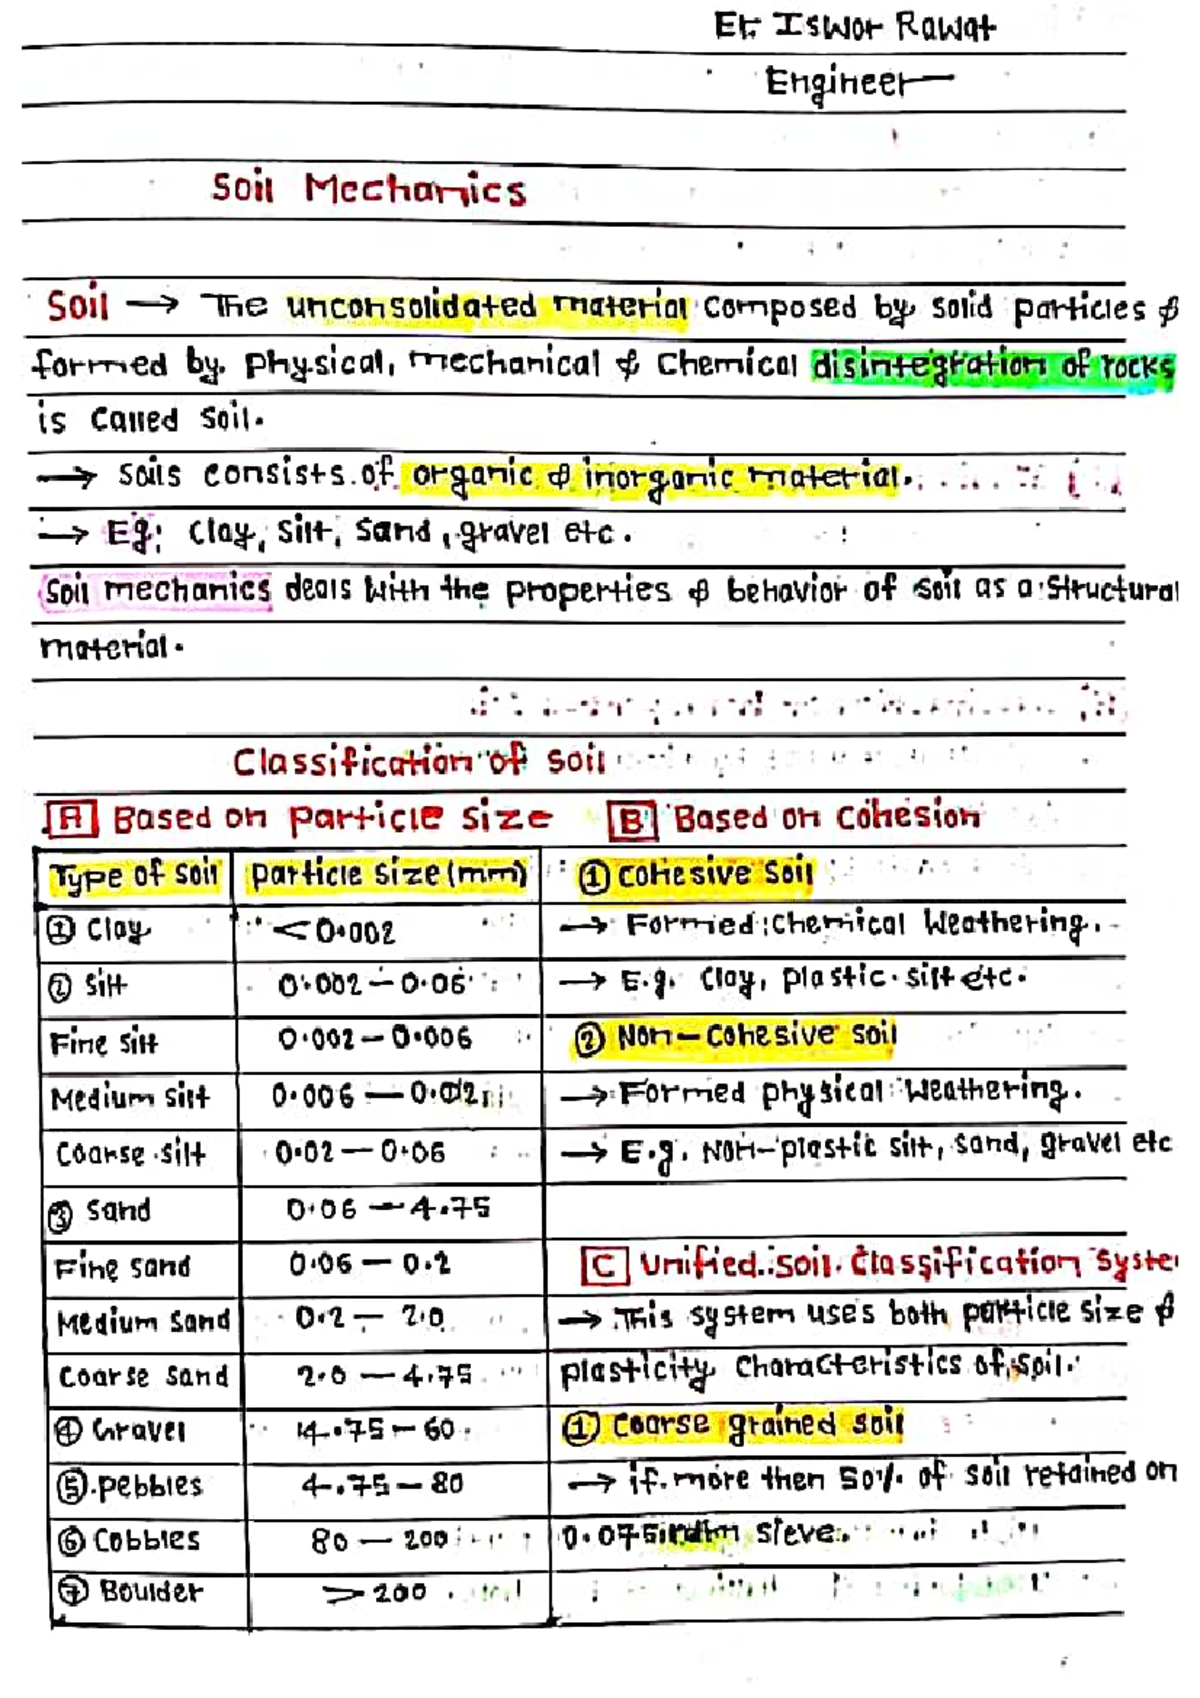 Er. Iswor Rawat
Engineer
Soil Mechanics
Soil → The unconsolidated material composed by solid particles &
formed by physical, mechanical & chemical disintegration of rocks
is called soil.
→ Soils consists of organic & inorganic material.
→ Eg: Clay, Silt, Sand, gravel etc.
Soil mechanics deals with the properties & behavior of soil as a structural
material.
Classification of Soil
A Based on particle size
Type of soil | particle size (mm)
① Clay | < 0.002
② Silt | 0.002 – 0.06
Fine silt | 0.002 – 0.006
Medium silt | 0.006 – 0.02
Coarse silt | 0.02 – 0.06
③ Sand | 0.06 – 4.75
Fine sand | 0.06 – 0.2
Medium sand | 0.2 – 2.0
Coarse sand | 2.0 – 4.75
④ Gravel | 4.75 – 60
⑤ pebbles | 4.75 – 80
⑥ Cobbles | 80 – 200
⑦ Boulder | > 200
B Based on Cohesion
① Cohesive Soil
→ Formed: Chemical Weathering.
→ E.g. Clay, plastic silt etc.
② Non-Cohesive soil
→ Formed physical Weathering.
→ E.g. Non-plastic silt, sand, gravel etc
C Unified soil Classification
→ This system uses both particle size &
plasticity characteristics of soil.
① Coarse grained soil
→ if more then 50% of soil retained on
0.075 sieve.